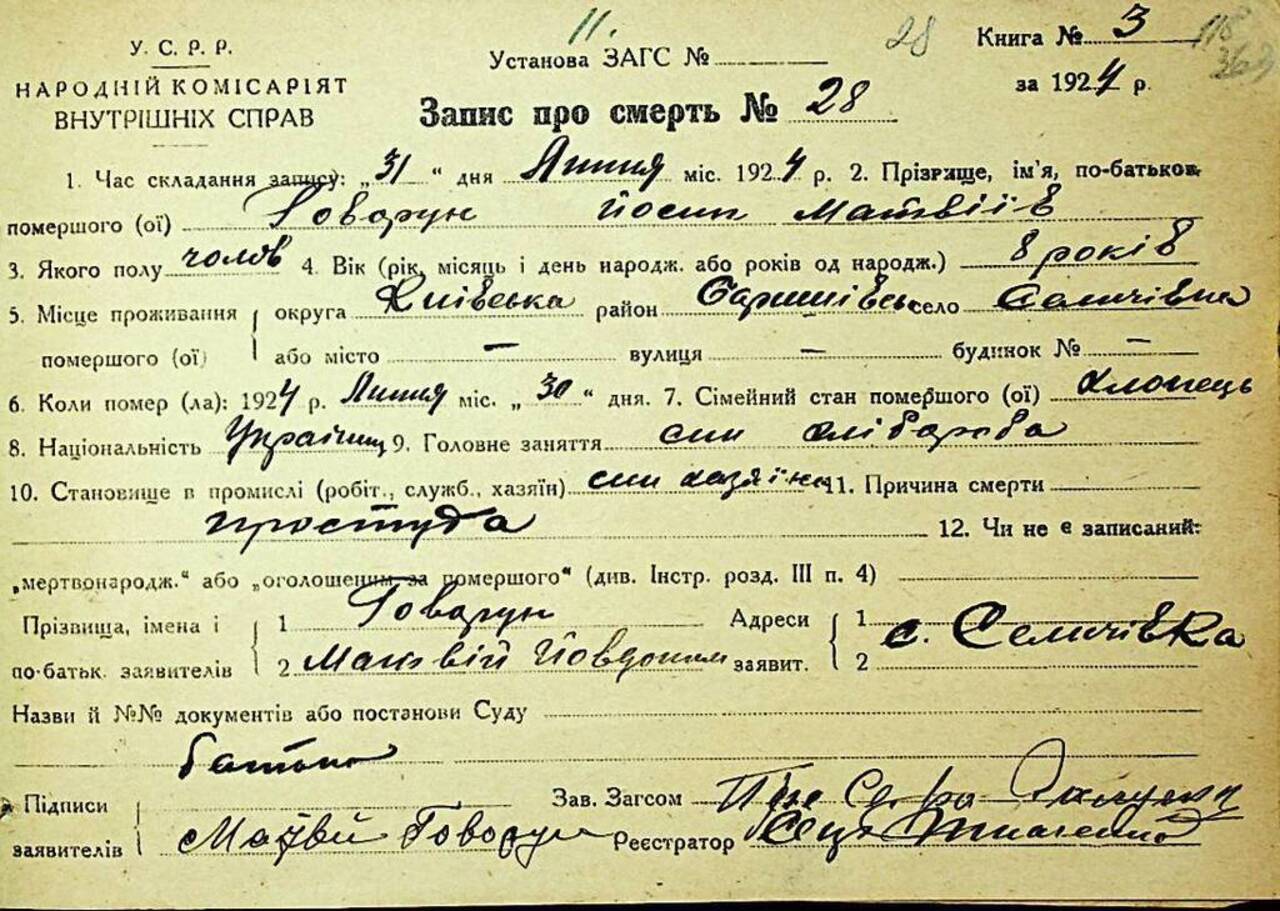 11. 28 118
У. С. Р. Р. Установа ЗАГС № Книга № 3 369
НАРОДНІЙ КОМІСАРІЯТ за 1924 р.
ВНУТРІШНІХ СПРАВ Запис про смерть № 28
1. Час складання запису: „31“ дня Липня міс. 1924 р. 2. Прізвище, ім'я, по-батьков.
помершого (ої) Говорун Йосип Матвіїв
3. Якого полу чолов 4. Вік (рік, місяць і день народж. або років од народж.) 8 років
5. Місце проживання округа Київська район Баришівськ село Селичівка
помершого (ої) або місто — вулиця — будинок № —
6. Коли помер (ла): 1924 р. Липня міс. „30“ дня. 7. Сімейний стан помершого (ої) хлопець
8. Національність Українц 9. Головне заняття син хлібороба
10. Становище в промислі (робіт., служб., хазяїн) син хазяїна 11. Причина смерти
простуда 12. Чи не є записаний:
„мертвонародж.“ або „оголошеним за помершого“ (див. Інстр. розд. III п. 4)
Прізвища, імена і 1 Говорун Адреси 1 с. Селичівка
по-батьк. заявителів 2 Матвій заявит. 2
Назви й №№ документів або постанови Суду
батько
Підписи Зав. Загсом
заявителів Матвій Говорун Реєстратор